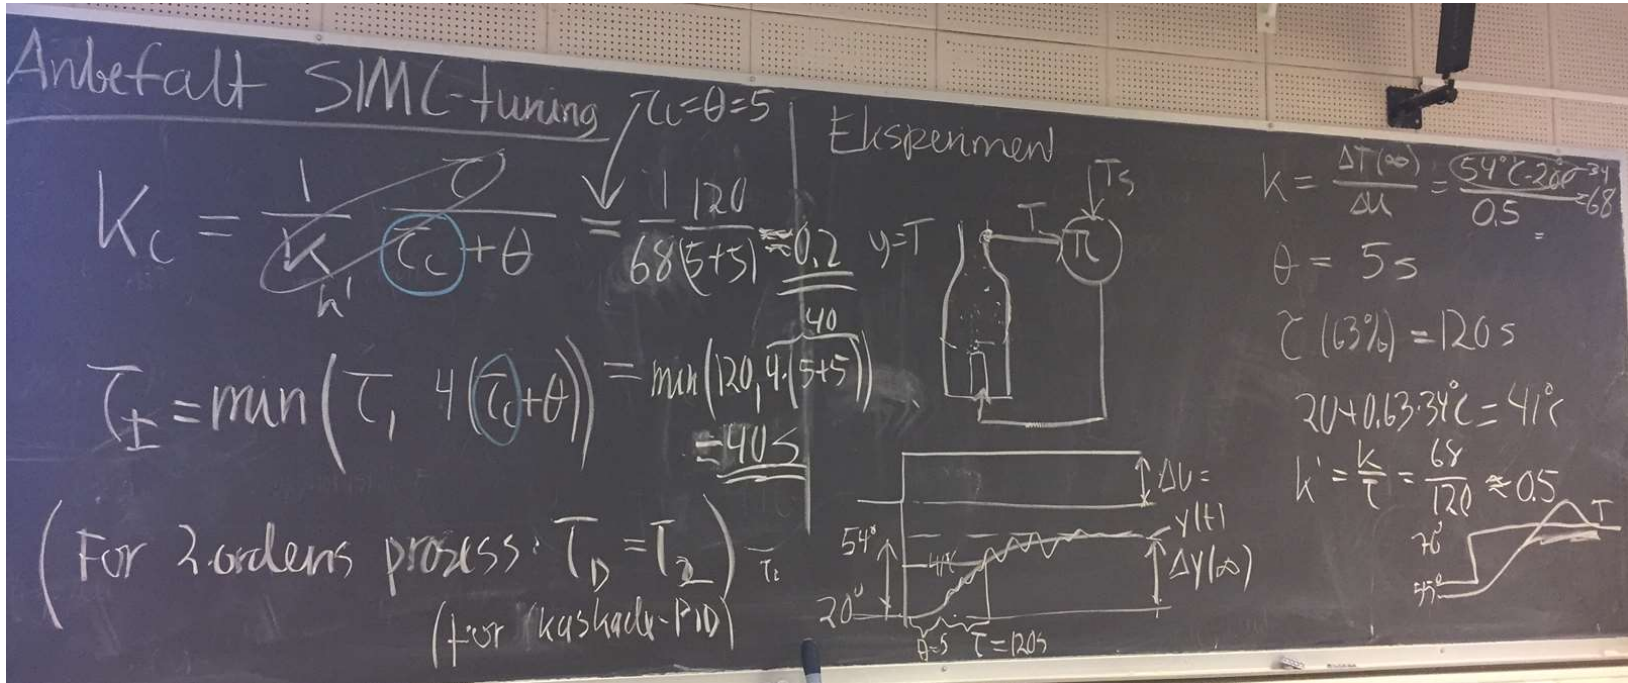 Anbefalt SIMC-tuning
τc=θ=5
Kc = 1/k τ/(τc+θ) = 1/68 120/(5+5) ≈ 0.2
k'
τI = min(τ, 4(τc+θ)) = min(120, 4·(5+5))
40
= 40s
(For 2.ordens prosess: τD = τ2)
(for kaskade-PID)
Eksperimen
Ts
T
y=T
ΔU=
y(t)
54°
Δy(∞)
20°
θ=5 τ=120s
k = ΔT(∞)/Δu = (54°C-20°)/0.5 = 68
34
θ = 5s
τ (63%) = 120s
20+0.63·34°C = 41°C
k' = k/τ = 68/120 ≈ 0.5
T
70°